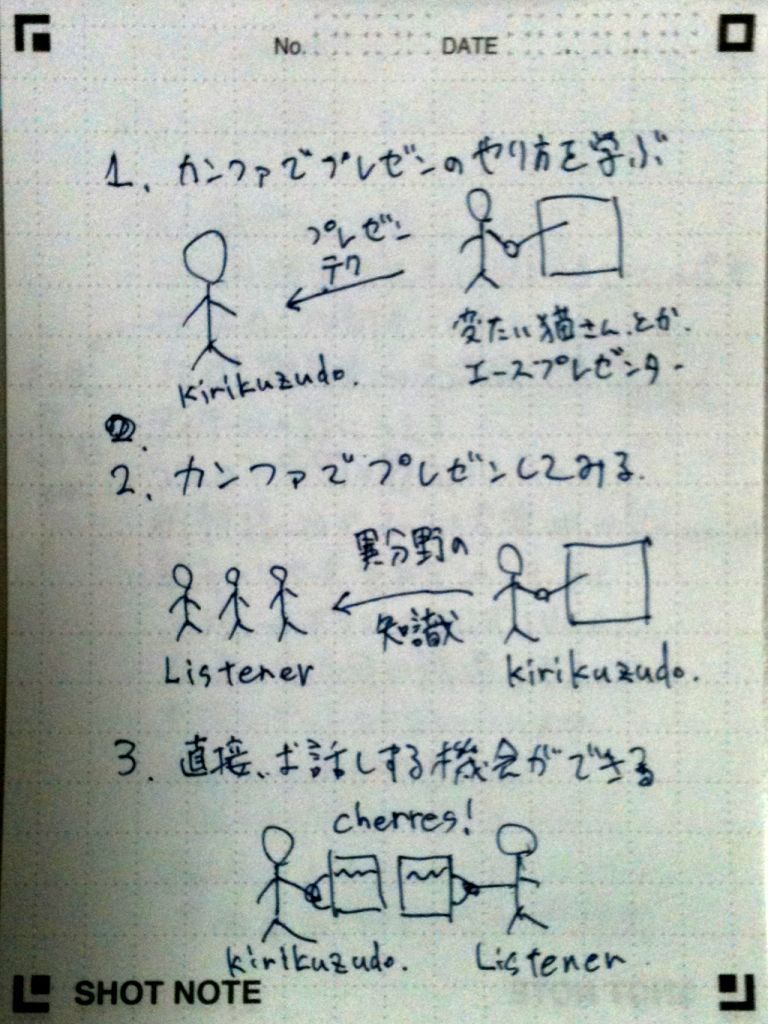 No. DATE
1. カンファでプレゼンのやり方を学ぶ
プレゼン
テク
変たい猫さん、とか.
エースプレゼンター
kirikuzudo.
2.
2. カンファでプレゼンしてみる.
異分野の
知識
Listener kirikuzudo.
3. 直接、お話しする機会ができる
cherres!
kirikuzudo. Listener
SHOT NOTE